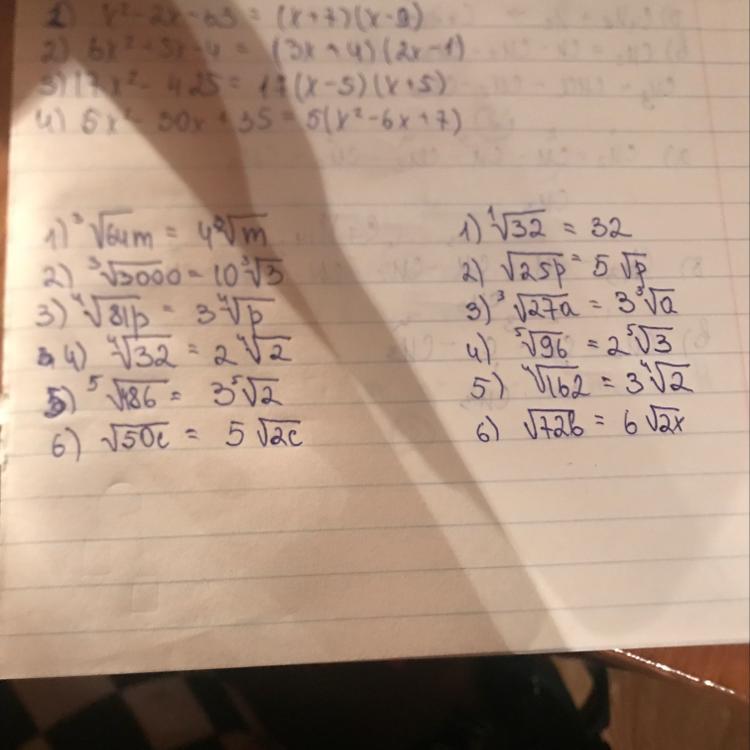 1) x² - 2x - 63 = (x+7)(x-9)
2) 6x² + 5x - 4 = (3x+4)(2x-1)
3) 17x² - 425 = 17(x-5)(x+5)
4) 5x² - 30x + 35 = 5(x² - 6x + 7)
1) ³√64m = 4³√m
2) ³√3000 = 10³√3
3) ⁴√81p = 3⁴√p
4) ⁴√32 = 2⁴√2
5) ⁵√486 = 3⁵√2
6) √50c = 5√2c
1) ¹√32 = 32
2) √25p = 5√p
3) ³√27a = 3³√a
4) ⁵√96 = 2⁵√3
5) ⁴√162 = 3⁴√2
6) √72b = 6√2x